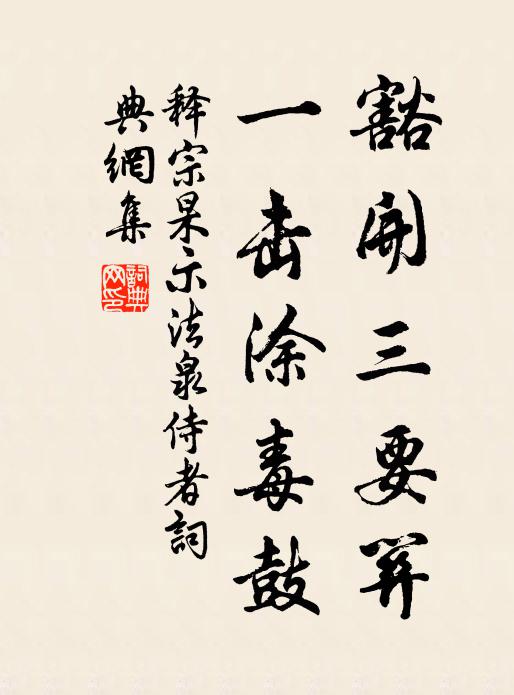 豁開三要
一击涂毒鼓
释宗杲示法泉侍者詞
典網集
詞典
网印